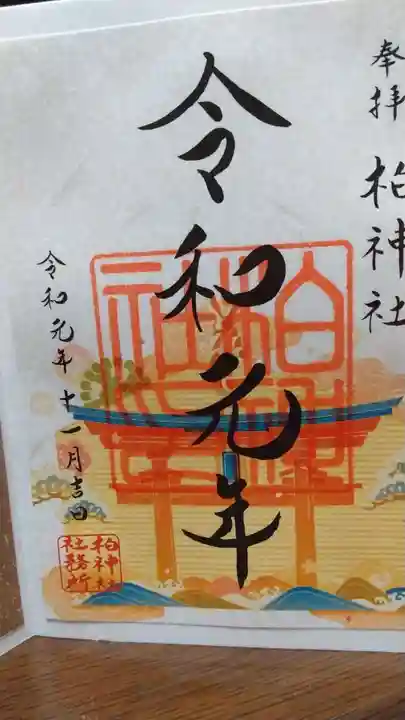 奉拝
柏神社
令和元年
令和元年十一月吉日
柏神社
社務所